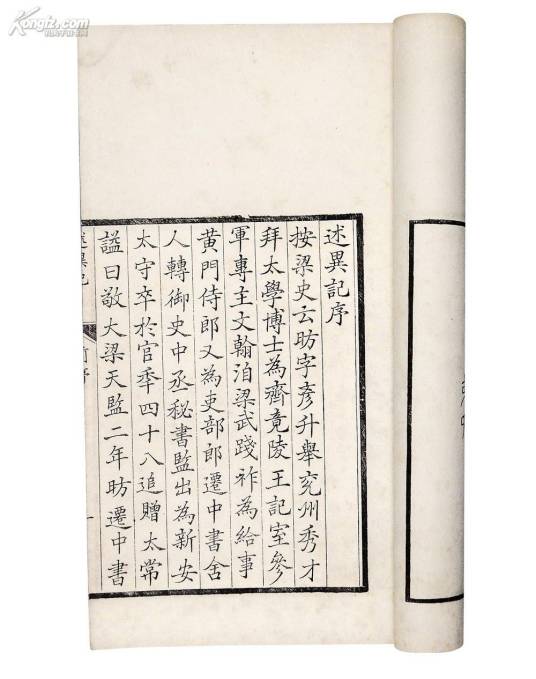 Kongfz.com
述異記序
按梁史云昉字彥升舉兗州秀才
拜太學博士為齊竟陵王記室參
軍專主文翰洎梁武踐祚為給事
黃門侍郎又為吏部郎遷中書舍
人轉御史中丞秘書監出為新安
太守卒於官年四十八追贈太常
謚曰敬大梁天監二年昉遷中書
述異記
前序
一